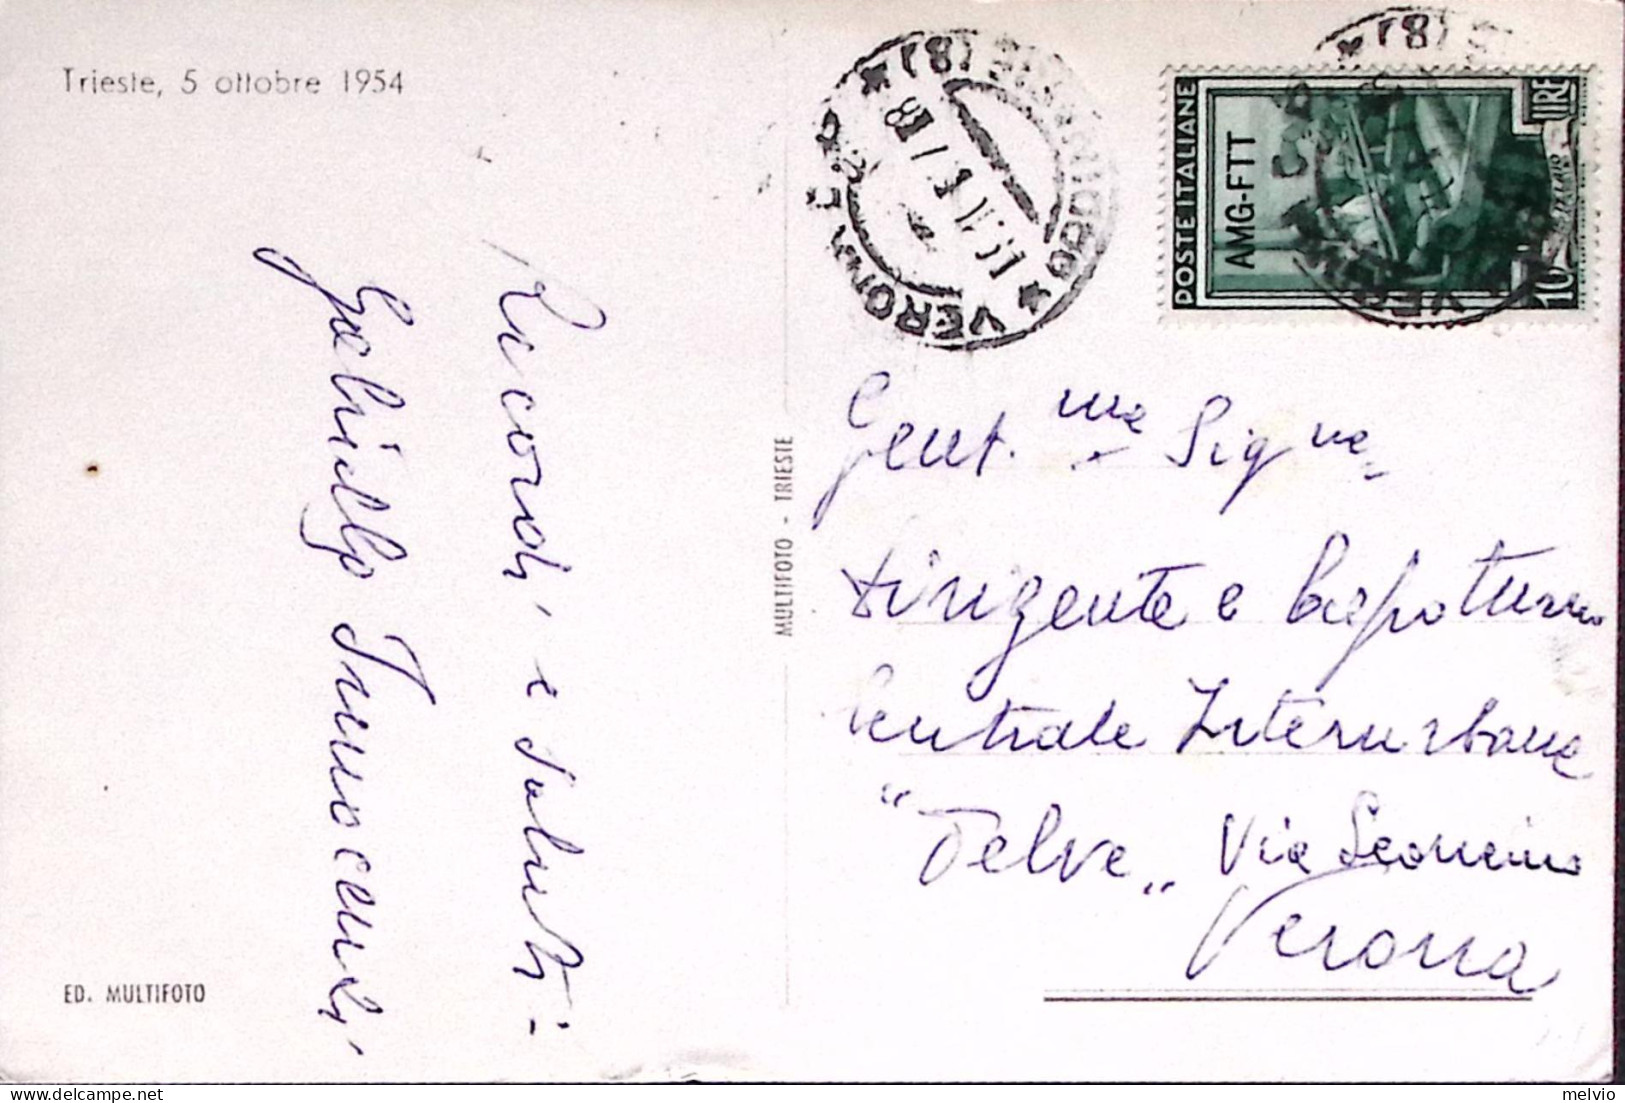 Trieste, 5 ottobre 1954
Ricordi e saluti
Innocenti
ED. MULTIFOTO
MULTIFOTO - TRIESTE
POSTE ITALIANE
AMG-FTT
10 LIRE
VERONA
Gent.me Signe,
Dirigente e Capoturno
Centrale Interurbana
"Telve" Via Leoncino
Verona
melvio